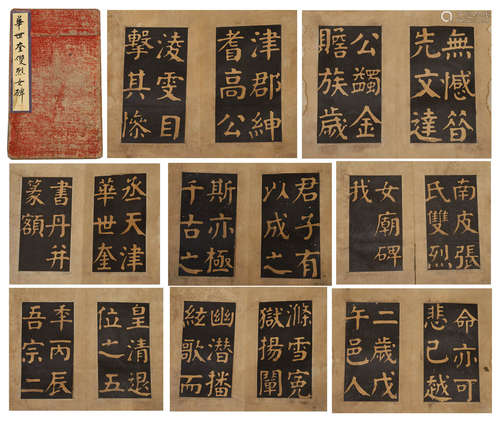 華世奎雙烈女碑
津郡紳
耆高公
淩雯目
擊其慘
無憾昔
先文達
公蠲金
贍族歲
丞天津
華世奎
書丹并
篆額
君子有
以成之
斯亦極
千古之
南皮張
氏雙烈
女廟碑
我
皇清退
位之五
秊丙辰
吾宗二
滌雪冤
獄揚闡
幽潛播
絃歌而
命亦可
悲已越
二歲戊
午邑人